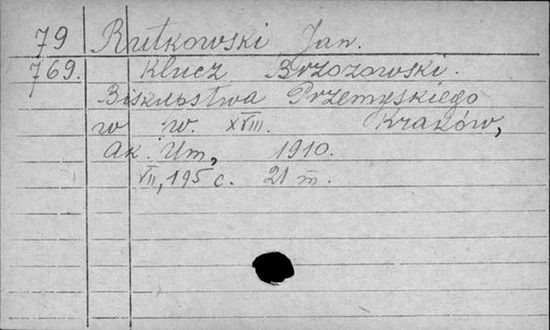 79 Rutkowski Jan.
769. Klucz Brzozowski.
Biskupstwa Przemyskiego
w w. XVIII. Kraków,
Ak. Um, 1910.
VII, 195 c. 21 m.